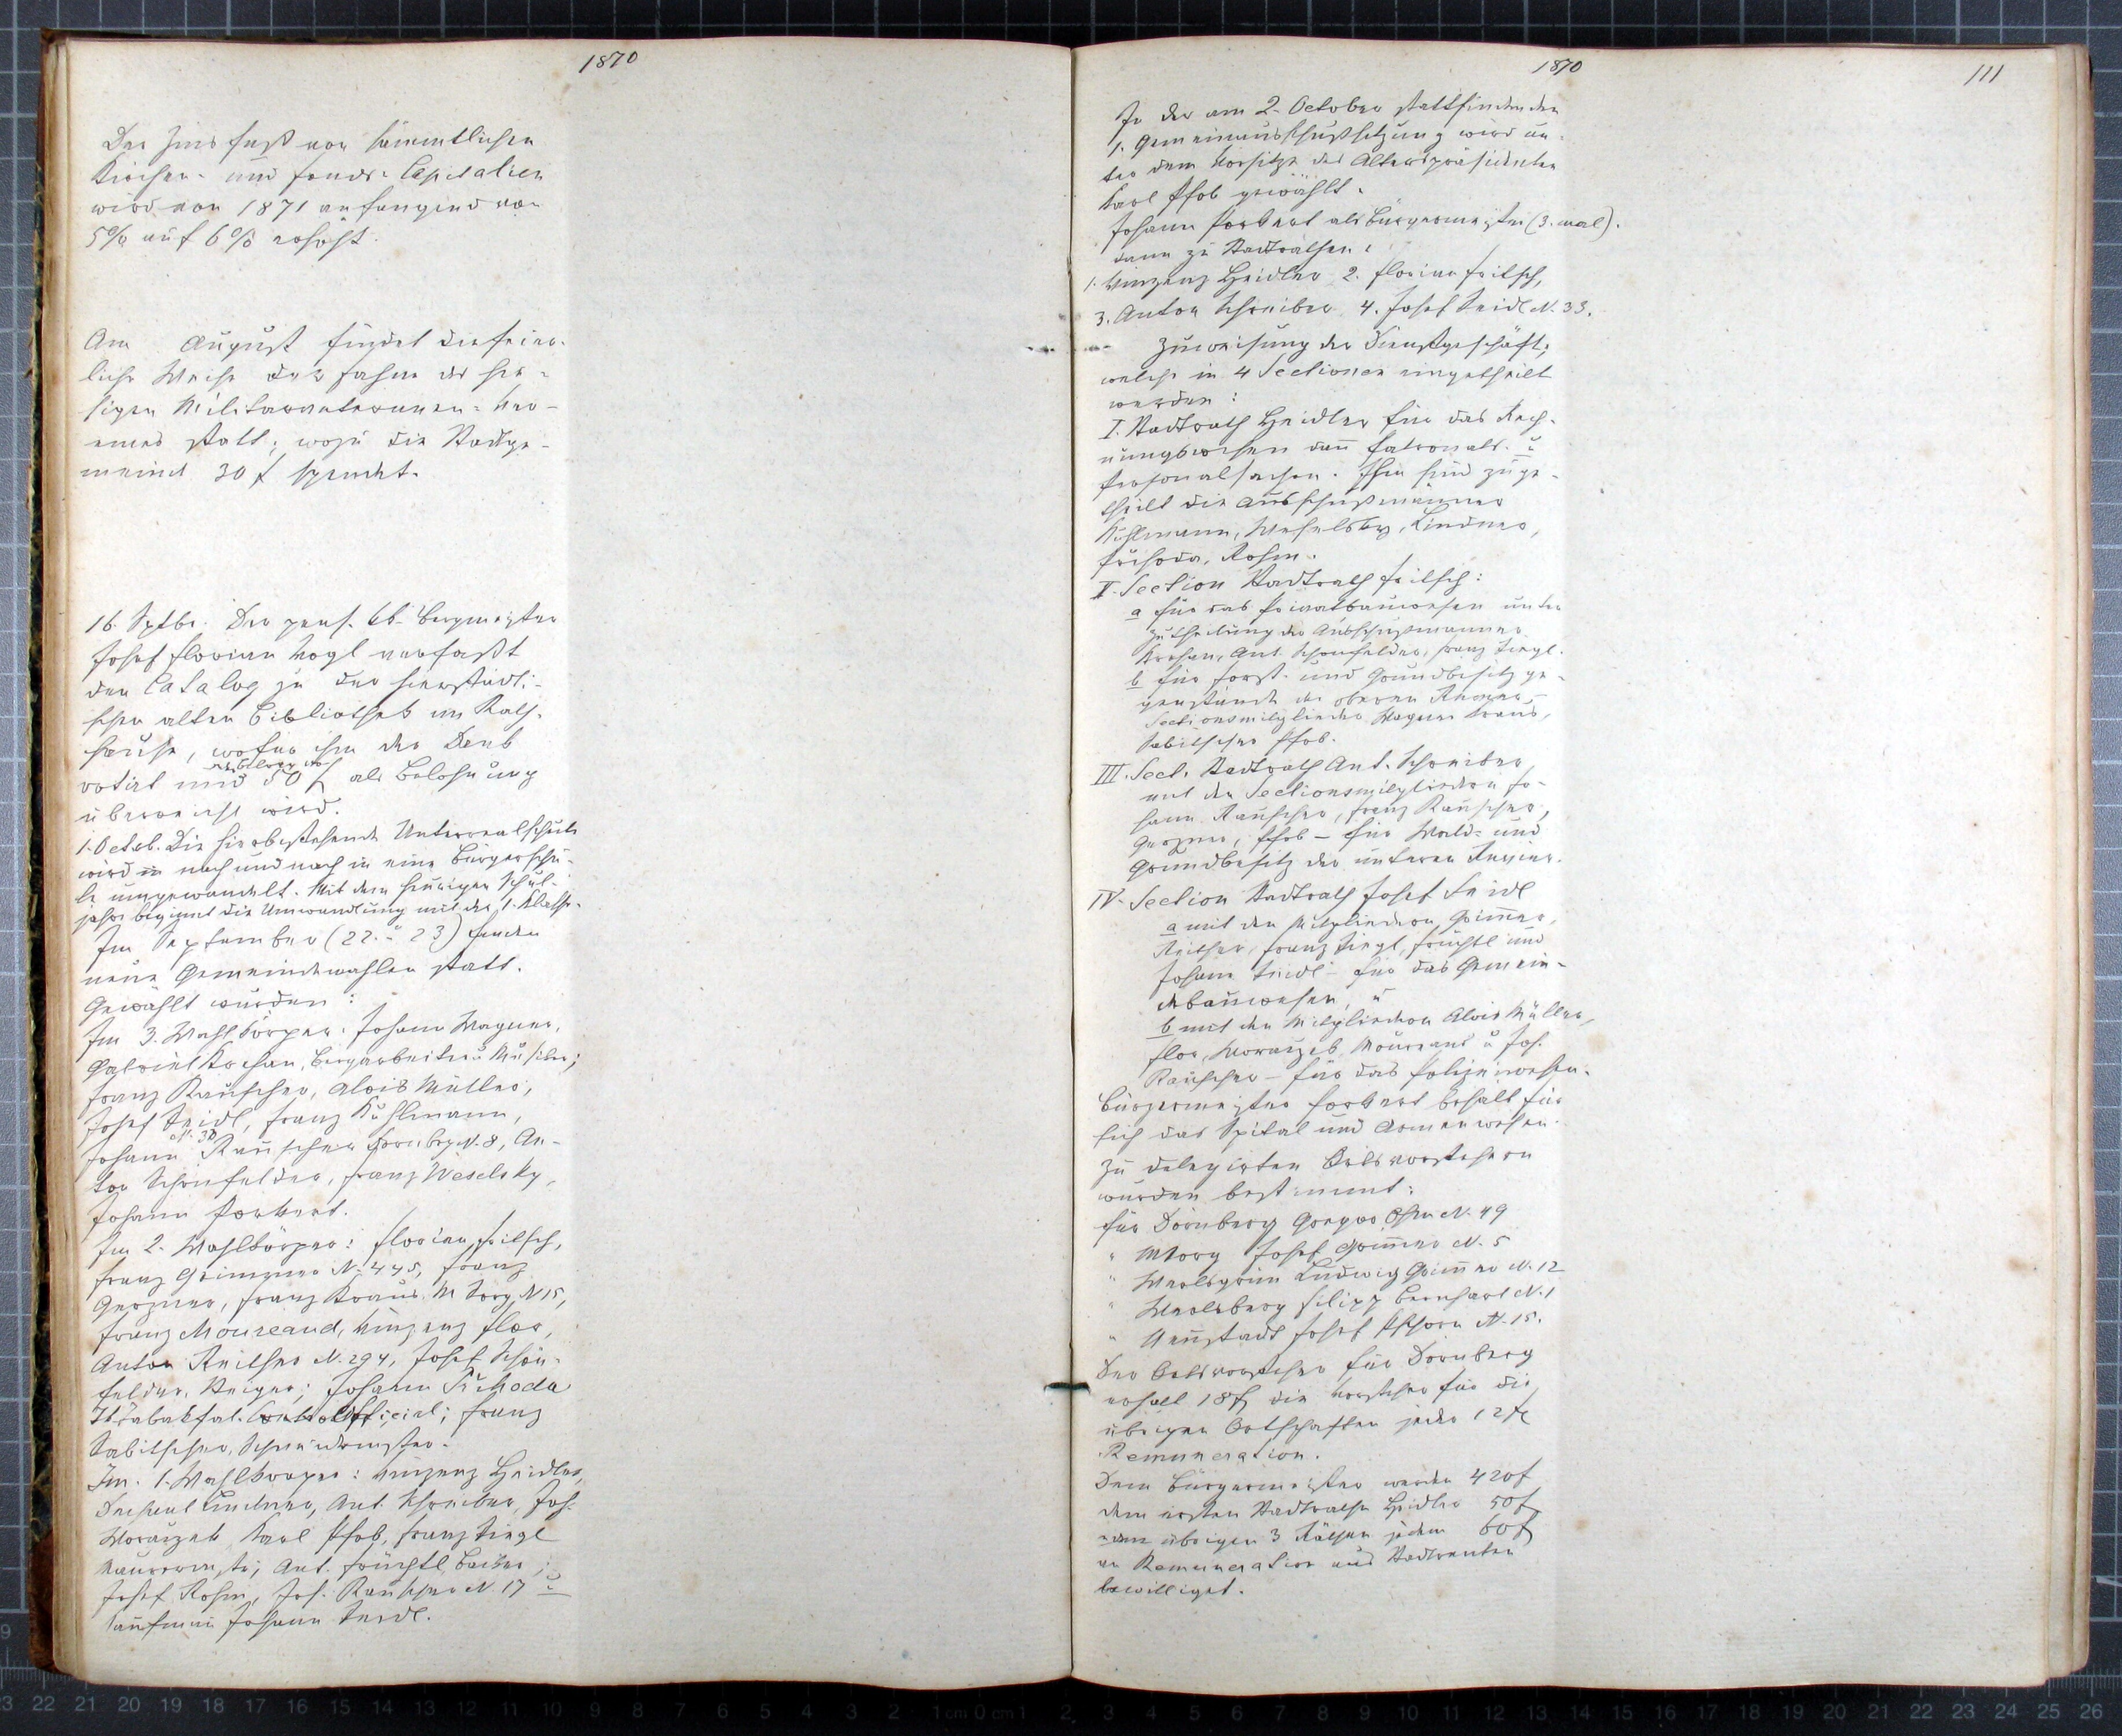 1870
Der Zinsfuß von sämmtlichen
Kirchen- und Fonds-Capitalien
wird von 1871 anfangend von
5% auf 6% erhöht.
Am August findet die feier-
liche Weihe der Fahne des hie-
sigen Militärveteranen-Ver-
eines statt; wozu die Stadtge-
meinde 30 f spendet.
16. Sptbr. Der pens. kk Bergmeister
Josef Florian Vogl verfaßt
den Catalog zu der hierstädti-
schen alten Bibliothek im Rath-
hause, wofür ihm der Dank
votirt und 50 f als Belohnung
überreicht wird.
1. Octob. Die hierbestehende Unterrealschule
wird in nach und nach in eine Bürgerschu-
le umgewandelt. Mit dem heurigen Schul-
jahre beginnt die Umwandlung mit der 1. Klasse.
Im September (22. u 23) finden
neue Gemeindewahlen statt.
Gewählt wurden:
Im 3. Wahlkörper: Johann Wagner,
Gabriel Krehan, Bergarbeiter u Musiker;
Franz Rauscher, Alois Müller,
Josef Seidl, Franz Kuhlmann,
N. 33
Johann Rauscher Dörnberg N. 8, An-
ton Schönfelder, Franz Weselsky,
Johann Porkert.
Im 2. Wahlkörper: Florian Fritsch,
Franz Grimmer N. 445, Franz
Gerzner, Franz Kraus M Sorg N 15,
Franz Moureaud, Vinzenz Flor,
Anton Reither N. 294, Josef Schön-
felder, Steiger; Johann Přihoda
Tkabakfab. Controlofficial; Franz
Sabitscher, Schneidermeister.
Im. 1. Wahlkörper: Vinzenz Heidler,
Dechant Lindner, Ant. Schreiber, Jos.
Woraczek, Karl Pfob, Franz Siegl
Maurermeister, Ant. Früchtl Bäcker;
Josef Rohm, Jos. Rauscher N. 17 u
Kaufman Johann Seidl.
1870
111
In der am 2. October stattfindenden
1. Gemeinausschußsitzung wird un-
ter dem Vorsitze des Alterspräsidenten
Karl Pfob gewählt.
Johann Porkert als Bürgermeister (3. mal).
dann zu Stadträthen:
1. Vinzenz Heidler 2. Florian Fritsch,
3. Anton Schreiber 4. Josef Seidl N. 33.
Zuweisung der Dienstgeschäfte,
welche in 4 Sectionen eingetheilt
werden:
I. Stadtrath Heidler für das Rech-
nungswesen dan Patronats- u
Personalsachen. Ihm sind zuge-
theilt die Ausschußmänner
Kuhlmann, Weselsky, Lindner,
Přihoda, Rohm.
II. Section Stadtrath Fritsch:
a für das Privatbauwesen unter
Zutheilung der Ausschußmänner
Krehan, Ant. Schönfelder, Franz Siegl.
b für Forst- und Grundbesitz ge-
genstände der oberen Reviere,
Sectionsmitglieder Wagner Kraus,
Sabitscher Pfob.
III. Sect. Stadtrath Ant. Schreiber
mit den Sectionsmitgliedern Jo-
hann Rauscher, Franz Rauscher,
Gerzner, Pfob – für Wald- und
Grundbesitz der unteren Reviere.
IV. Section Stadtrath Josef Seidl
a mit den Mitgliedern Grimmer,
Reither, Franz Siegl, Früchtl und
Johann Seidl – für das Gemein-
debauwesen, u
b mit den Mitgliedern Alois Müller,
Flor, Woraczek, Moureaud u Jos.
Rauscher – für das Polizeiwesen.
Bürgermeister Porkert behält für
sich das Spital und Armenwesen.
Zu delegirten Ortsvorstehern
wurden bestimmt:
für Dörnberg Gregor N. 49
" M Sorg Josef Grimmer N. 5
" Werlsgrün Ludwig Grimmer N. 12
" Werlsberg Filipp Bernhart N. 1
" Neustadt Josef Pschorn N. 15.
Der Ortsvorsteher für Dörnberg
erhält 18 f die Vorsteher für die
übrigen Ortschaften jeder 12 f
Remuneration.
Dem Bürgermeister werden 420 f
dem ersten Stadtrathe Heidler 50 f
den übrigen 3 Räthen jedem 60 f
an Remuneration aus Stadtrenten
bewilliget.